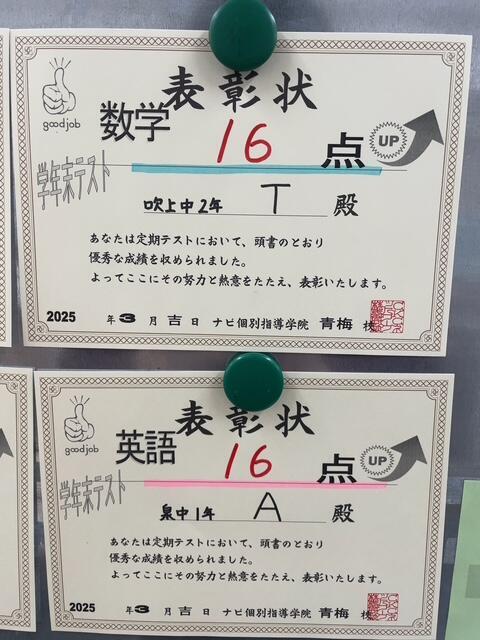 表彰状
good job
数学 16 点 UP
学年末テスト
吹上中2年 T 殿
あなたは定期テストにおいて、頭書のとおり
優秀な成績を収められました。
よってここにその努力と熱意をたたえ、表彰いたします。
2025 年 3 月 吉 日 ナビ個別指導学院 青梅 校
表彰状
good job
英語 16 点 UP
学年末テスト
泉中1年 A 殿
あなたは定期テストにおいて、頭書のとおり
優秀な成績を収められました。
よってここにその努力と熱意をたたえ、表彰いたします。
2025 年 3 月 吉 日 ナビ個別指導学院 青梅 校